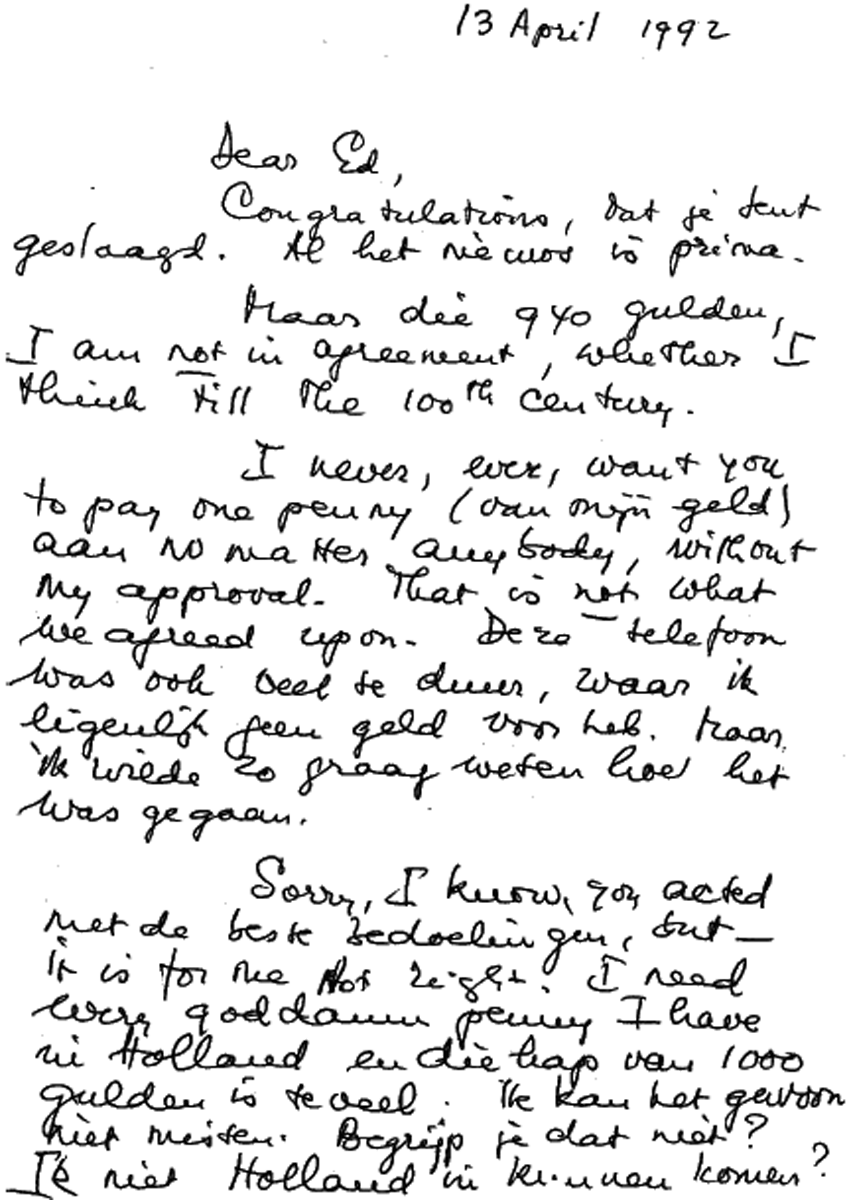 13 April 1992
Dear Ed,
Congratulations, dat je bent
geslaagd. Al het nieuws is prima.
Maar die 940 gulden,
I am not in agreement, whether I
think till the 100th century.
I never, ever, want you
to pay one penny (van mijn geld)
aan no matter anybody, without
my approval. That is not what
we agreed upon. Deze telefoon
was ook veel te duur, waar ik
eigenlijk geen geld voor heb. Maar
ik wilde zo graag weten hoe het
was gegaan.
Sorry, I know, you acted
met de beste bedoelingen, but —
it is for me not right. I need
every goddamn penny I have
in Holland en die hap van 1000
gulden is teveel. Ik kan het gewoon
niet missen. Begrijp je dat niet?
Ik niet Holland in kunnen komen?